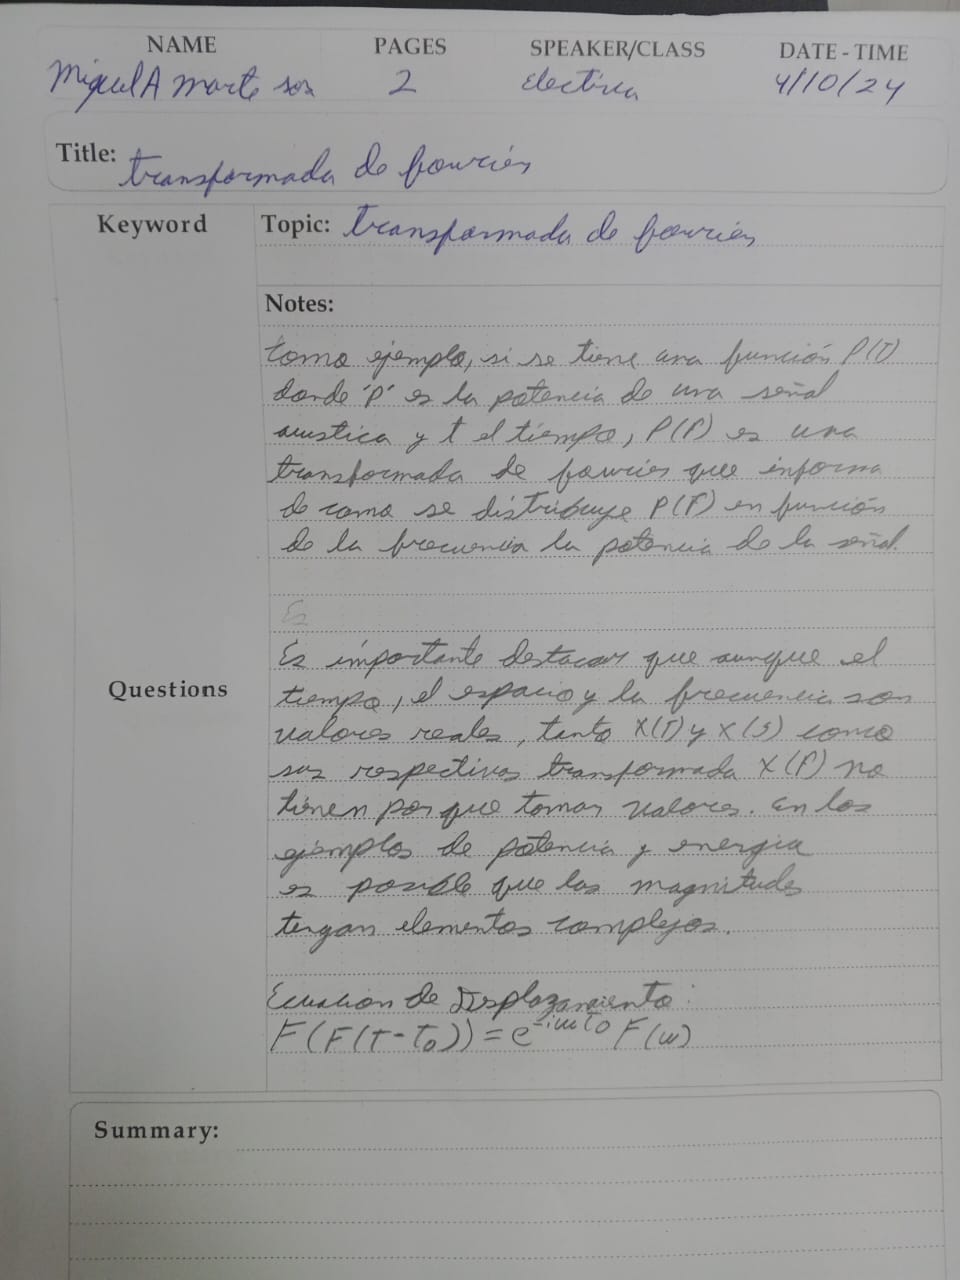 NAME PAGES SPEAKER/CLASS DATE - TIME
Miguel A Marte sosa 2 electiva 4/10/24
Title: transformada de fourier
Keyword Topic: transformada de fourier
Notes:
Como ejemplo, si se tiene una función P(T)
donde 'p' es la potencia de una señal
acustica y t el tiempo, P(f) es una
transformada de fourier que informa
de como se distribuye P(F) en función
de la frecuencia la potencia de la señal.
Es
Es importante destacar que aunque el
Questions
tiempo, el espacio y la frecuencia son
valores reales, tanto X(T) y X(s) como
sus respectivas transformada X(f) no
tienen por que tomar valores. en los
ejemplos de potencia y energia
es posible que las magnitudes
tengan elementos complejos.
Ecuación de Desplazamiento:
F(F(T-T₀)) = e^-iωT₀ F(ω)
Summary: